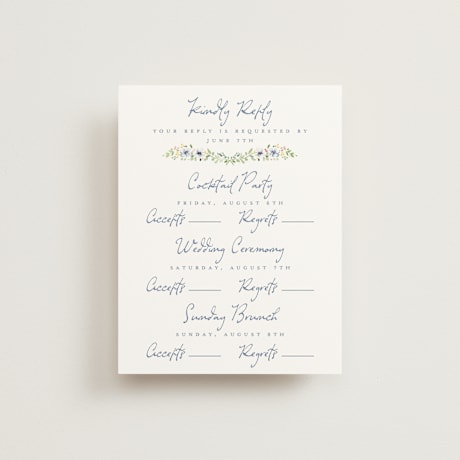 Kindly Reply
YOUR REPLY IS REQUESTED BY
JUNE 7TH
Cocktail Party
FRIDAY, AUGUST 6TH
Accepts Regrets
Wedding Ceremony
SATURDAY, AUGUST 7TH
Accepts Regrets
Sunday Brunch
SUNDAY, AUGUST 8TH
Accepts Regrets